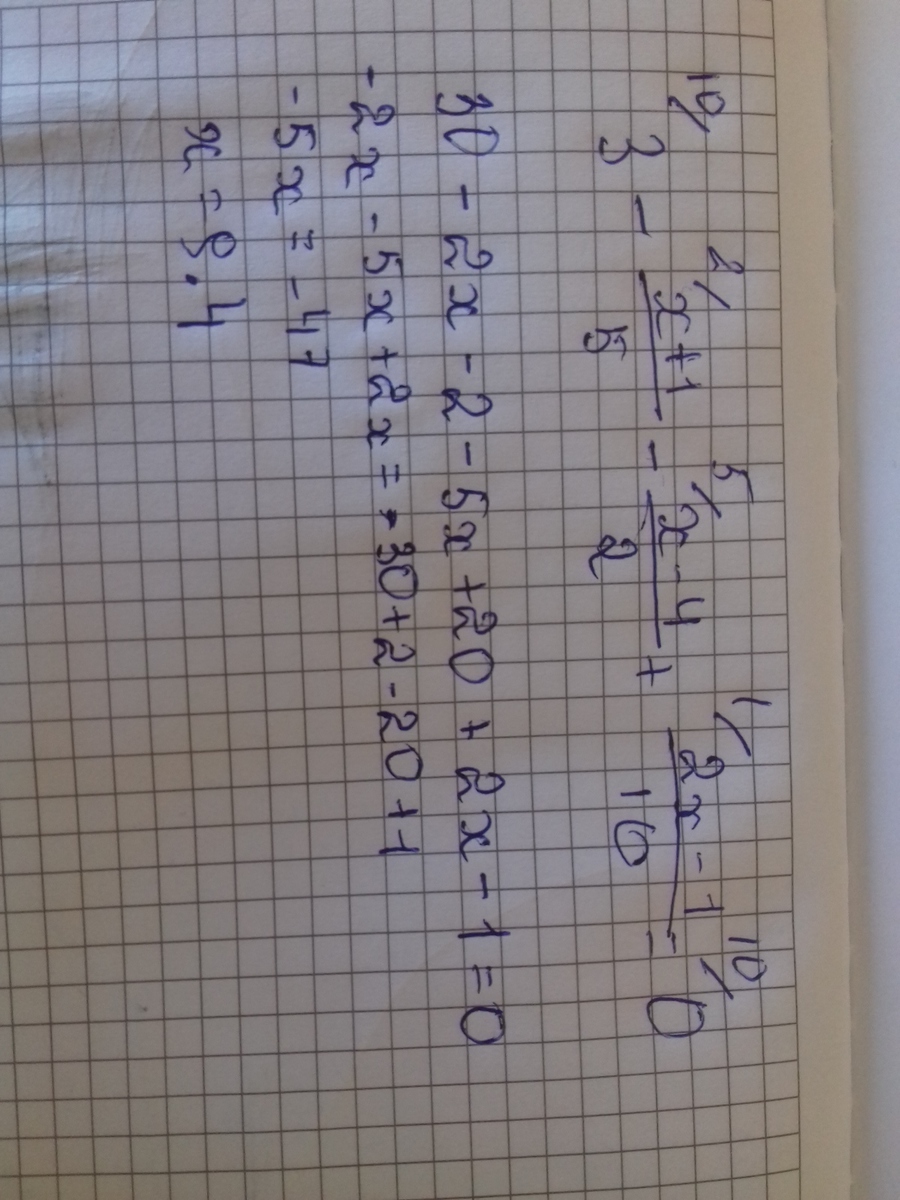 10/ 2/ 5/ 1/ 10/
3 - x+1/5 - x-4/2 + 2x-1/10 = 0
30 - 2x - 2 - 5x + 20 + 2x - 1 = 0
-2x - 5x + 2x = -30 + 2 - 20 + 1
-5x = -47
x = 9.4